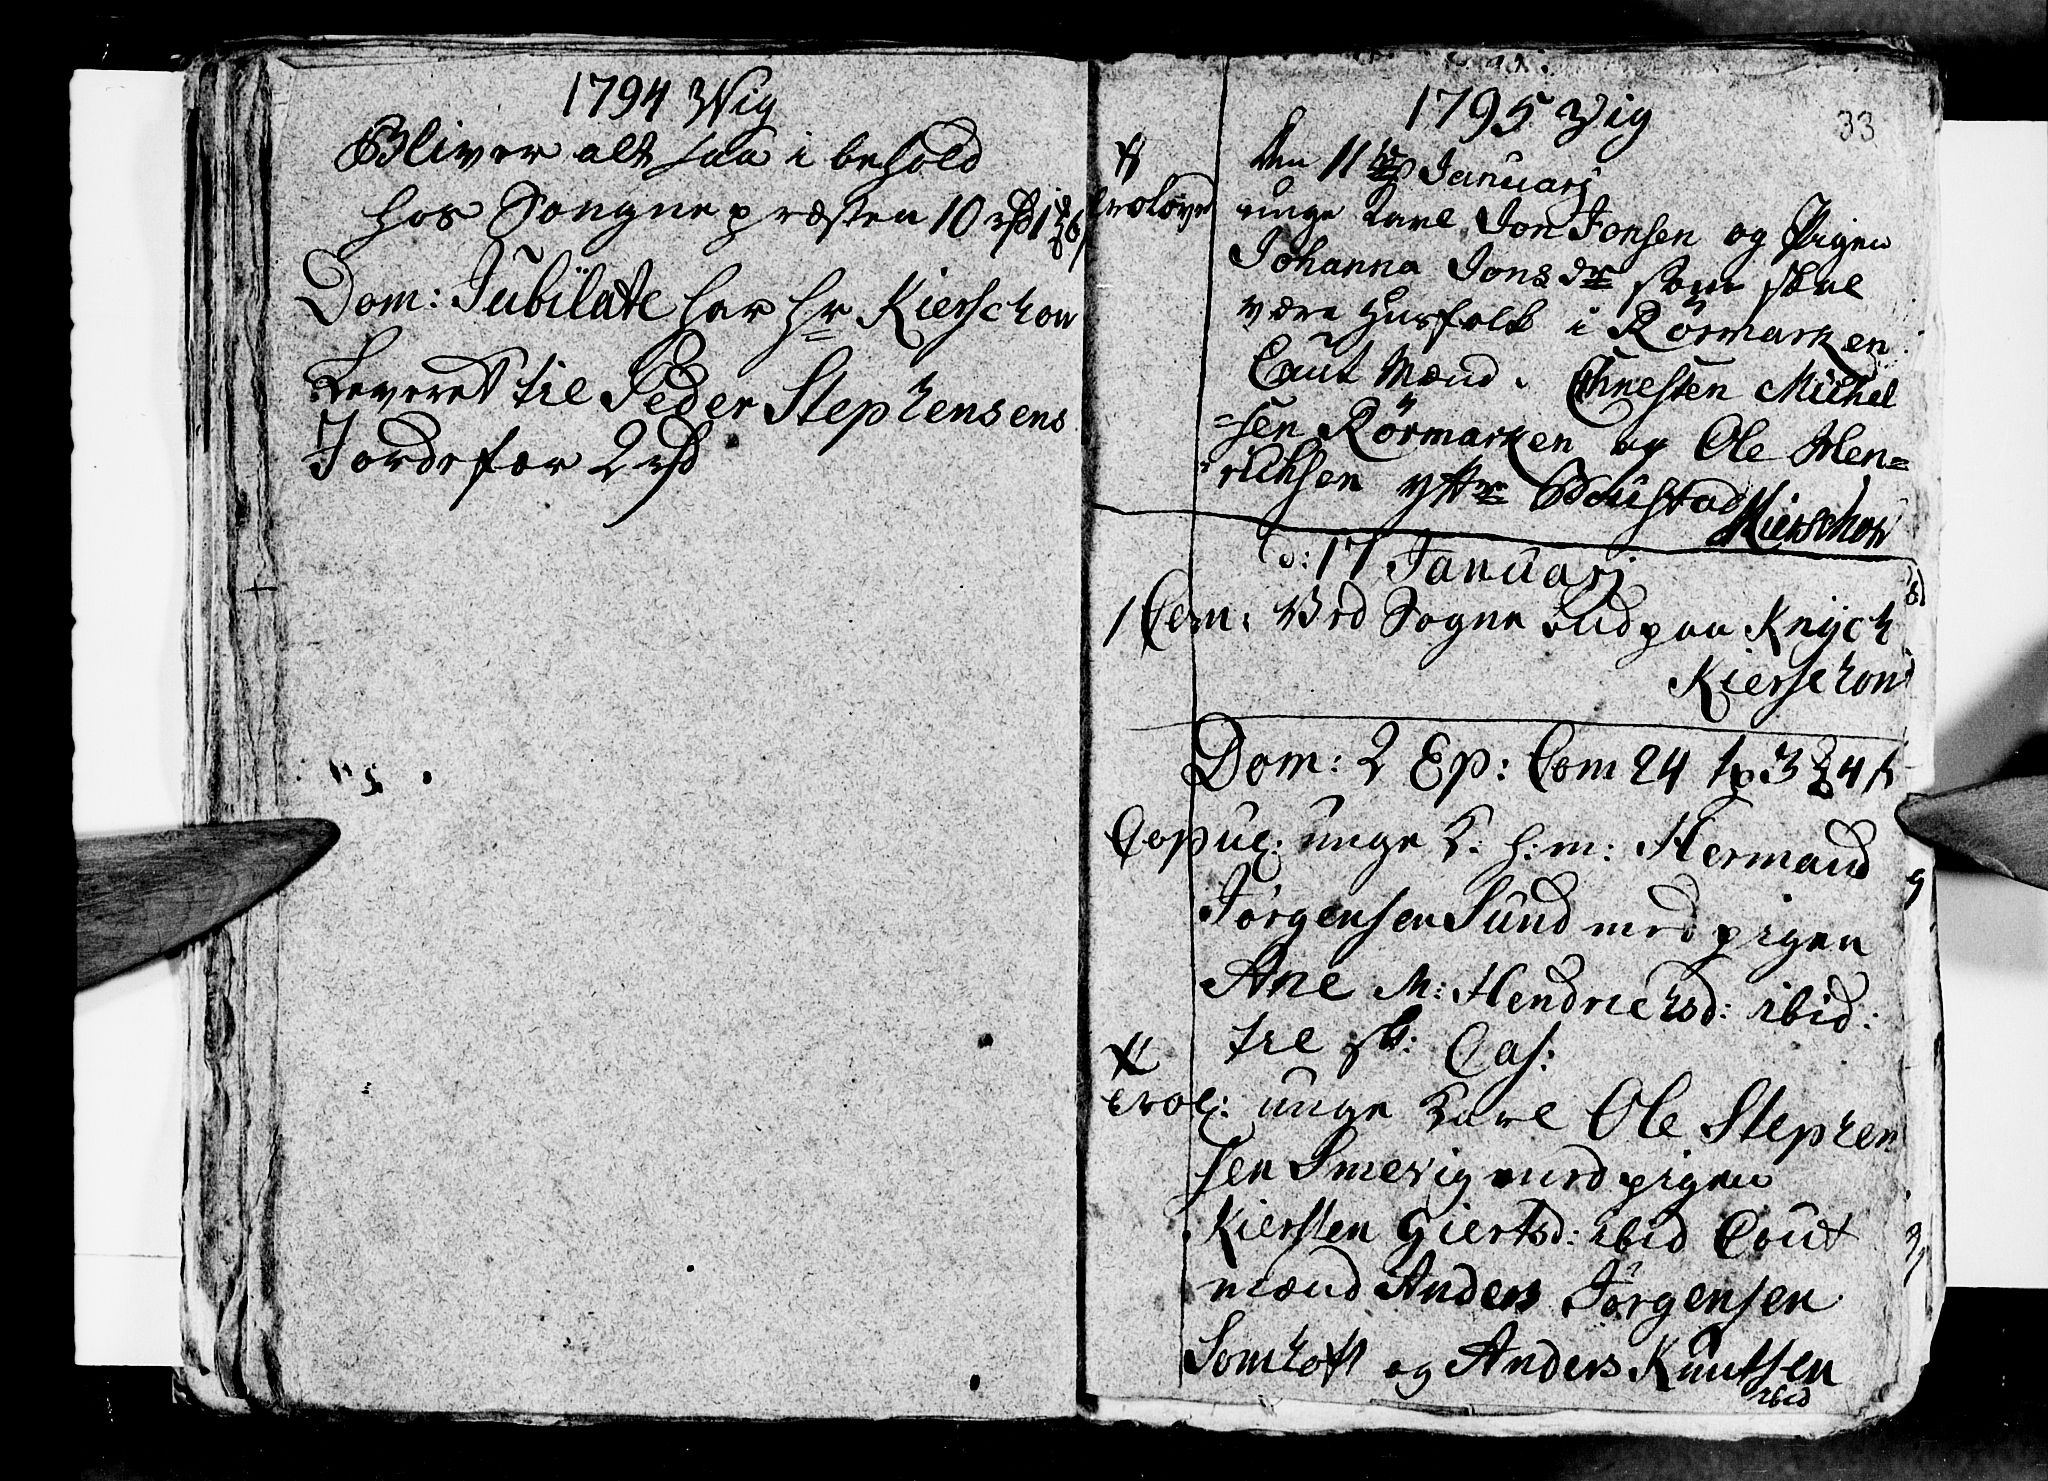 1794 Wig
Bliver alt saa i behold
hos Sognepræsten 10 rd 1
Dom: Jubilate har Hr Kierschow
Leveret til Peder Stephensens
Jordefær 2 rd
1795 Vig
33
Den 11te Januarj
trolovet unge karl Jon Jonsen og Pigen
Johanna Jonsdr som skal
være Husfolk i Rörmarken
Caut Mænd. Chresten Michel
=sen Rörmarken og Ole Hen=
richsen ytre Boustad
Kierschow
d: 17 Januarj
1 Com. Ved Sogne bud paa Knÿch
Kierschow
Dom: 2 Ep: Com 24
Copul: unge K: h: m: Hermand
Jörgensen Sund med pigen
Ane M: Hendrichsd: ibid:
til sk: Cas:
trol: unge Karl Ole Stephen
sen Smevig med pigen
Kiersten Giertsd: ibid Cout
mænd Anders Jörgensen
Somhoft og Anders Knutsen
ibid